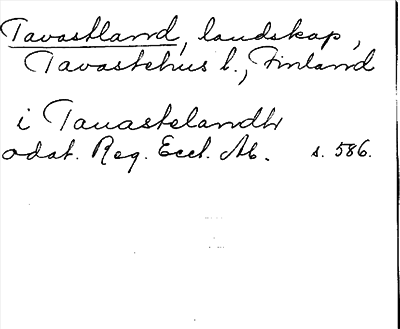 Tavastland, landskap,
Tavastehus l., Finland
i Tauastelandh
odat. Reg. Eccl. Ab. s. 586.